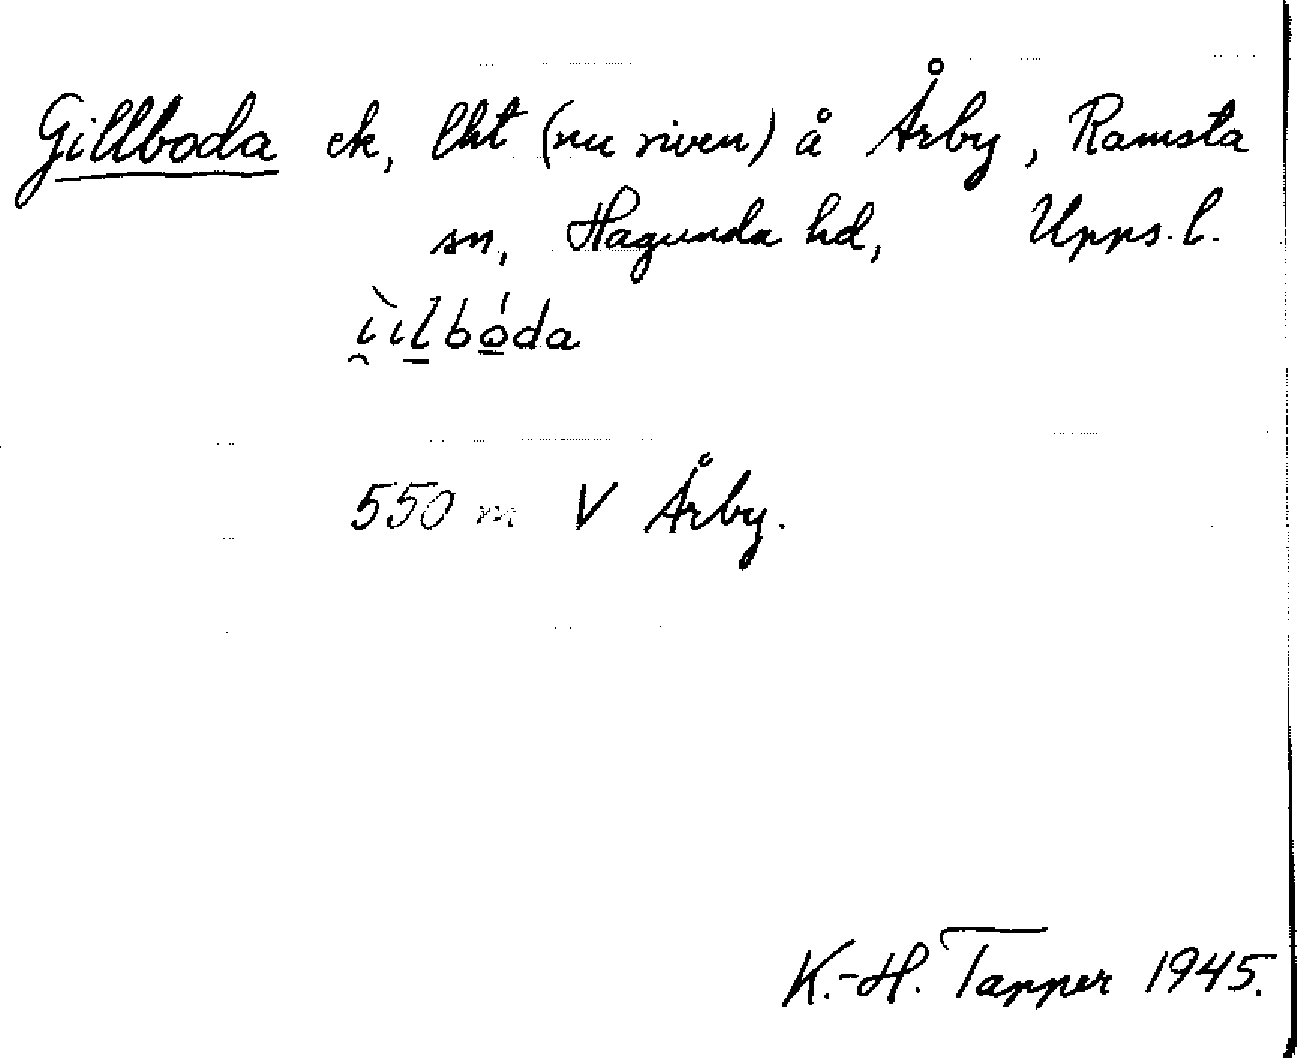 Gillboda ek, lht (nu riven) å Årby, Ramsta
sn, Hagunda hd, Upps. l.
550 m V Årby.
K.-H. Tapper 1945.